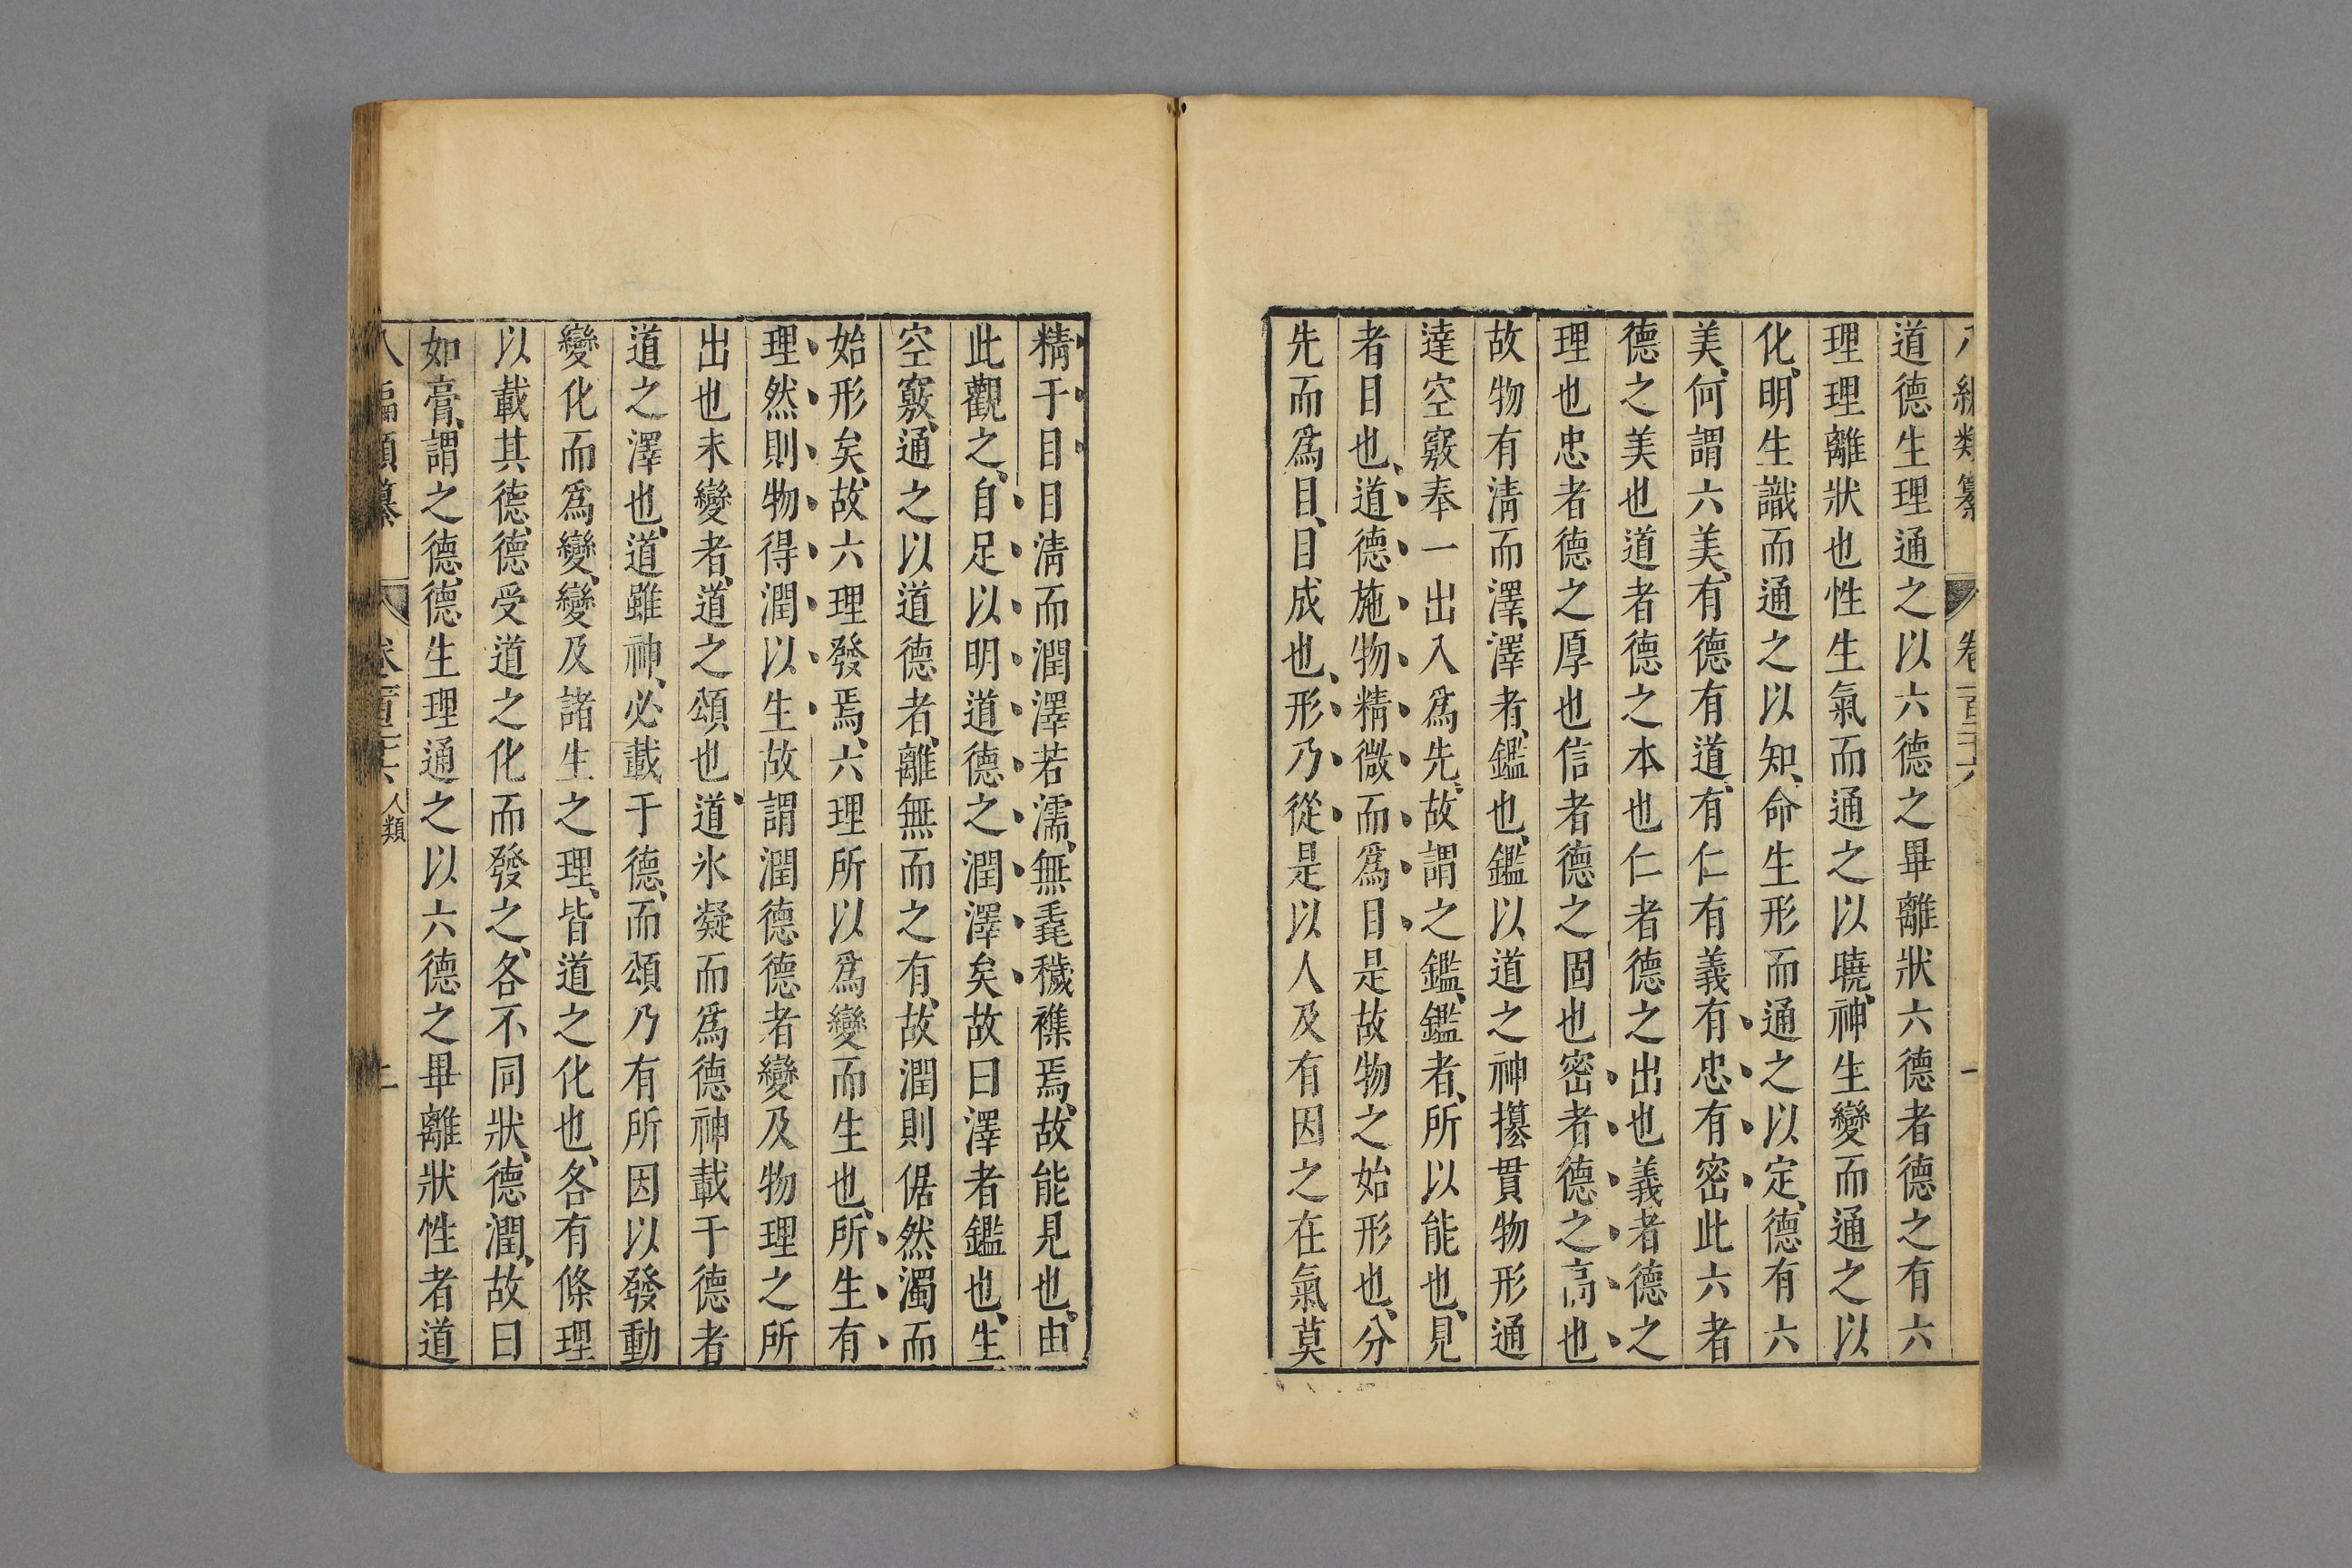 道德生理通之以六德之畢離狀六德者德之有六
理理離狀也性生氣而通之以曉神生變而通之以
化明生識而通之以知命生形而通之以定德有六
美何謂六美有德有道有仁有義有忠有密此六者
德之美也道者德之本也仁者德之出也義者德之
理也忠者德之厚也信者德之固也密者德之高也
故物有清而澤澤者鑑也鑑以道之神㩴貫物形通
達空竅奉一出入為先故謂之鑑鑑者所以能也見
者目也道德施物精微而為目是故物之始形也分
先而為目目成也形乃從是以人及有因之在氣莫
精于目目清而潤澤若濡無毳穢襍焉故能見也由
此觀之自足以明道德之潤澤矣故曰澤者鑑也生
空竅通之以道德者離無而之有故潤則倨然濁而
始形矣故六理發焉六理所以為變而生也所生有
理然則物得潤以生故謂潤德德者變及物理之所
出也未變者道之頌也道氷凝而為德神載于德者
道之澤也道雖神必載于德而頌乃有所因以發動
變化而為變變及諸生之理皆道之化也各有條理
以載其德德受道之化而發之各不同狀德潤故曰
如膏謂之德德生理通之以六德之畢離狀性者道
八編類纂 卷一百三十六 人類 二